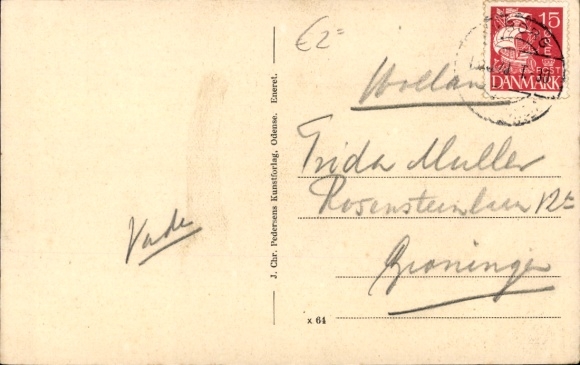 €2=
15
POST
DANMARK
Holland
Frida Muller
12
Groningen
Vade
J. Chr. Pedersens Kunstforlag, Odense. Eneret.
x 64